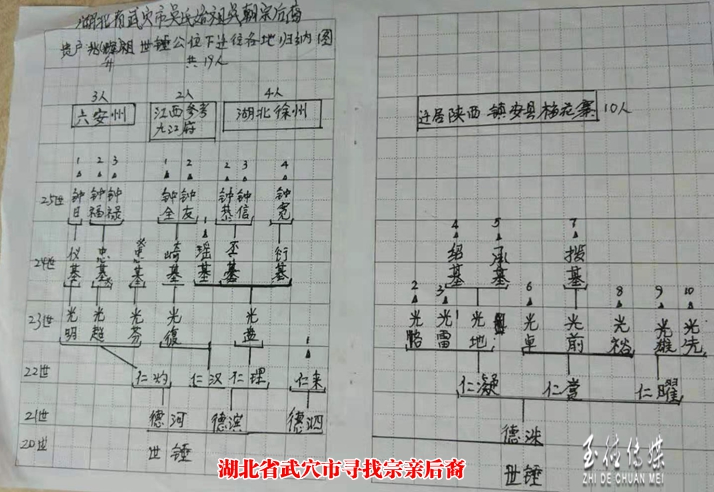 湖北省武穴市吴氏始祖吴朝宗后裔
世锤公位下迁往各地归纳图
共19人
3人 2人 4人
六安州 江西参考九江府 湖北徐州
迁居陕西 镇安县 梅花寨 10人
1 2 3 1 2 2 3 4
25世 钟日 钟福 钟禄 钟全 钟友 钟恭 钟信 钟宽
4 5 7
绍基 承基 授基
1
24世 仪基 忠基 崇基 崎基 瑶基 丕基 衍基
2 3 6 8 9 10
23世 光明 光超 光芬 光復 光盎
光昭 光雷 光地 光卓 光前 光裕 光雄 光先
1
22世 仁灼 仁汉 仁理 仁来
仁凝 仁赏 仁曜
21世 德河 德滨 德泗
德洙
20世 世锤
世锤
玉衡传媒
ZHI DE CHUAN MEI
湖北省武穴市寻找宗亲后裔